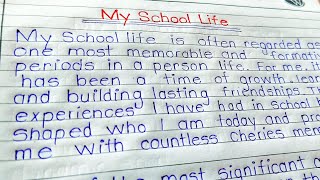 My School Life
My School life is often regarded as
one most memorable and formati
periods in a person life. For me. I
has been a time of growth lear
and building lasting friendships. Th
experiences I have had in school h
shaped who I am today and pro
me with countless cheries mem
of the most significant a